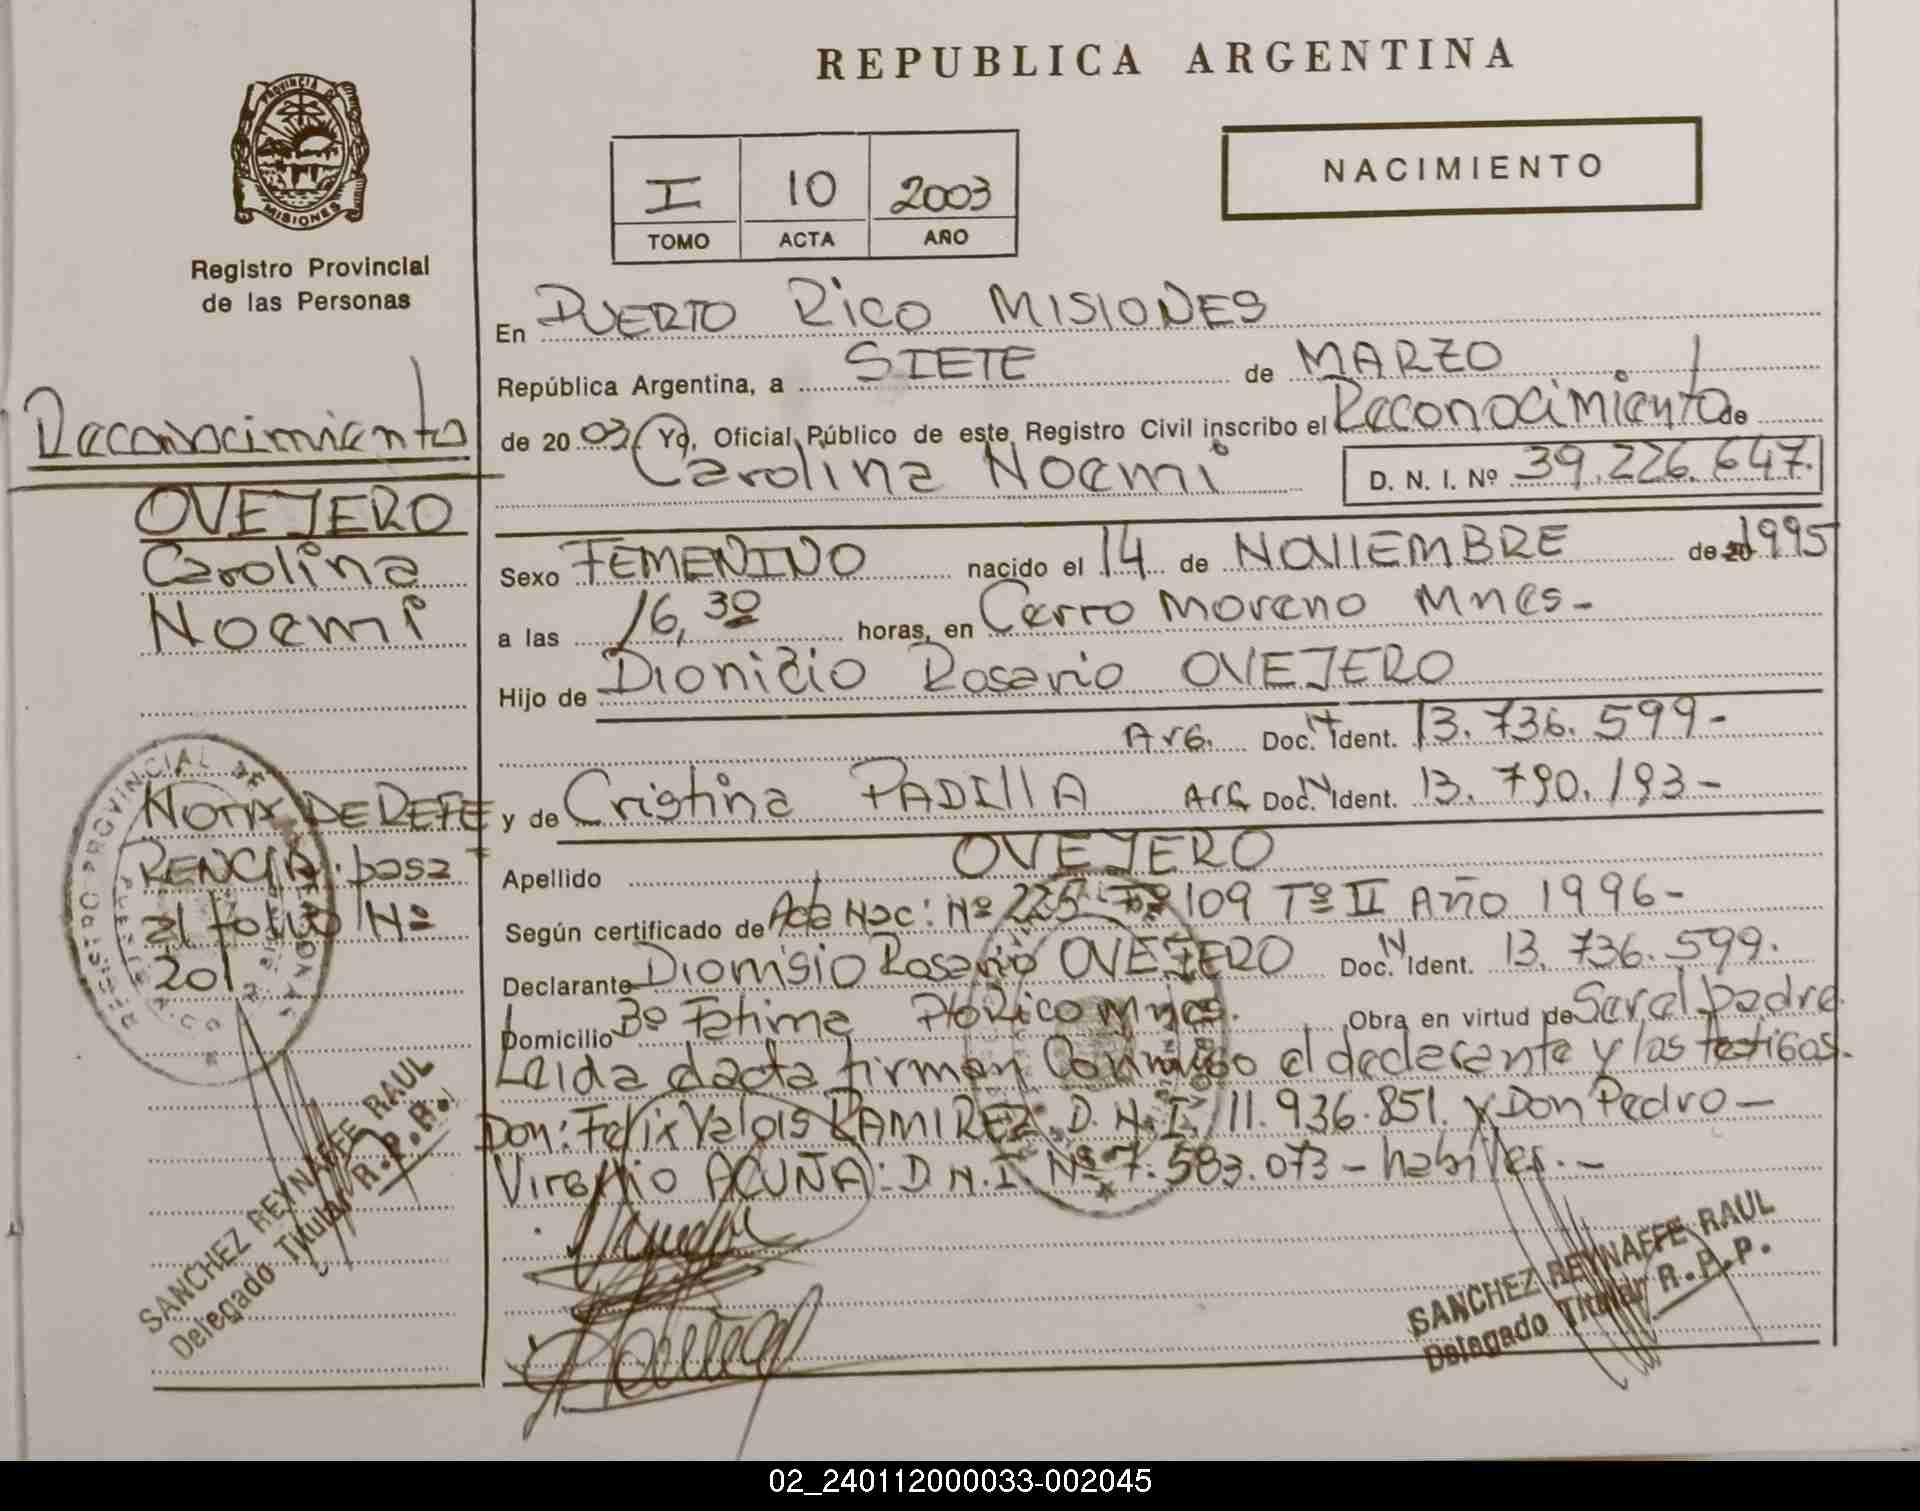 REPUBLICA ARGENTINA
PROVINCIA DE
MISIONES
Registro Provincial
de las Personas
NACIMIENTO
I 10 2003
TOMO ACTA AÑO
En PUERTO RICO MISIONES
República Argentina, a SIETE de MARZO
de 2003. Yo, Oficial Público de este Registro Civil inscribo el Reconocimiento de
Carolina Noemi D. N. I. Nº 39.226.647.
Sexo FEMENINO nacido el 14 de NOVIEMBRE de 20 1995
a las 16,30 horas, en Cerro Moreno Mnes-
Hijo de Dionicio Rosario OVEJERO
Arg. Doc. N Ident. 13.736.599-
y de Cristina PADILLA Arg Doc. N Ident. 13.790.193-
Apellido OVEJERO
Según certificado de Acta Nac: Nº 225 Fº 109 Tº II Año 1996-
Declarante Dionisio Rosario OVEJERO Doc. N Ident. 13.736.599.
Domicilio Bº Fatima Pto Rico Mnes. Obra en virtud de Ser el padre.
Leida el acta firman Conmigo el declarante y los testigos.
Don: Felix Valois RAMIREZ. D.N.I. 11.936.851. y Don Pedro-
Virgilio ACUÑA: D.N.I Nº 7.583.073- habiles.-
SANCHEZ REYNAFFE RAUL
Delegado Titular R.P.P.
Reconocimiento
OVEJERO
Carolina
Noemi
NOTA DE REFE
RENCIA: pasa
al folio Nº
201
SANCHEZ REYNAFFE RAUL
Delegado Titular R.P.P.
02_240112000033-002045